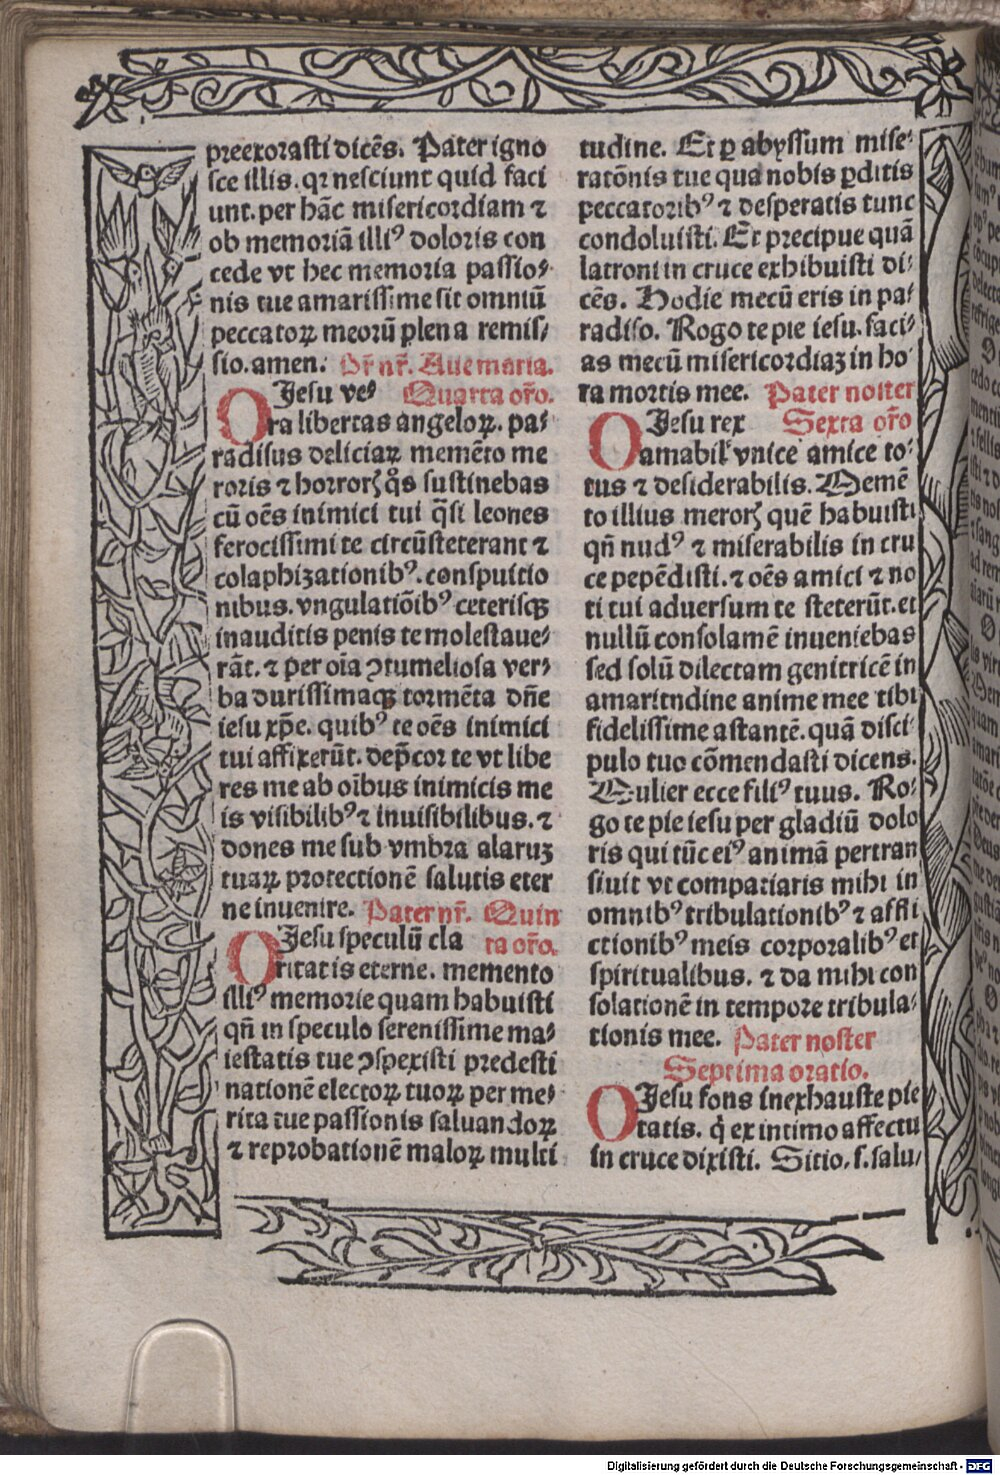 preexorasti dicēs. Pater igno
sce illis. qꝛ nesciunt quid faci
unt. per hāc misericordiam ⁊
ob memoriā illiꝰ doloris con
cede vt hec memoria passio⸗
nis tue amarissime sit omniū
peccatoꝝ meorū plena remis⸗
sio. amen. Pr̄ nr̄. Aue maria.
O Jesu ve⸗ Quarta or̄o.
ra libertas angeloꝝ. pa⸗
radisus deliciaꝝ memēto me
roris ⁊ horrorꝭ q̄s sustinebas
cū oēs inimici tui q̄si leones
ferocissimi te circūsteterant ⁊
colaphizationibꝰ. conspuitio
nibus. vngulatiōibꝰ ceterisqꝫ
inauditis penis te molestaue⸗
rāt. ⁊ per oīa ꝯtumeliosa ver⸗
ba durissimaqꝫ tormēta dn̄e
iesu xp̄e. quibꝰ te oēs inimici
tui affixerūt. dep̄cor te vt libe
res me ab oībus inimicis me
is visibilibꝰ ⁊ inuisibilibus. ⁊
dones me sub vmbra alaruꝫ
tuaꝝ protectionē salutis eter
ne inuenire. Pater nr̄. Quin
O Jesu speculū cla ta or̄o.
ritatis eterne. memento
illiꝰ memorie quam habuisti
qn̄ in speculo serenissime ma⸗
iestatis tue ꝯspexisti predesti
nationē electoꝝ tuoꝝ per me⸗
rita tue passionis saluandoꝝ
⁊ reprobationē maloꝝ multi
tudine. Et ꝑ abyssum mise⸗
ratōnis tue qua nobis ꝑditis
peccatoribꝰ ⁊ desperatis tunc
condoluisti. Et precipue quā
latroni in cruce exhibuisti di⸗
cēs. Hodie mecū eris in pa⸗
radiso. Rogo te pie iesu. faci⸗
as mecū misericordiaꝫ in ho⸗
ra mortis mee. Pater noster
O Jesu rex Sexta or̄o
amabil̓ vnice amice to⸗
tus ⁊ desiderabilis. Memē
to illius merorꝭ quē habuisti
qn̄ nudꝰ ⁊ miserabilis in cru
ce pepēdisti. ⁊ oēs amici ⁊ no
ti tui aduersum te steterūt. et
nullū consolamē inueniebas
sed solū dilectam genitricē in
amaritndine anime mee tibi
fidelissime astantē. quā disci⸗
pulo tuo cōmendasti dicens.
Mulier ecce filiꝰ tuus. Ro⸗
go te pie iesu per gladiū dolo
ris qui tūc eiꝰ animā pertran
siuit vt compatiaris mihi in
omnibꝰ tribulationibꝰ ⁊ affli
ctionibꝰ meis corporalibꝰ et
spiritualibus. ⁊ da mihi con
solationē in tempore tribula⸗
tionis mee. Pater noster
Septima oratio.
O Jesu fons inexhauste pie
tatis. q̇ ex intimo affectu
in cruce dixisti. Sitio. s. salu⸗
Digitalisierung gefördert durch die Deutsche Forschungsgemeinschaft - DFG